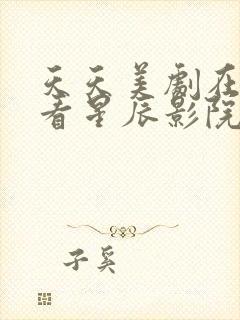 天天美劇在
看星辰影院
子奚